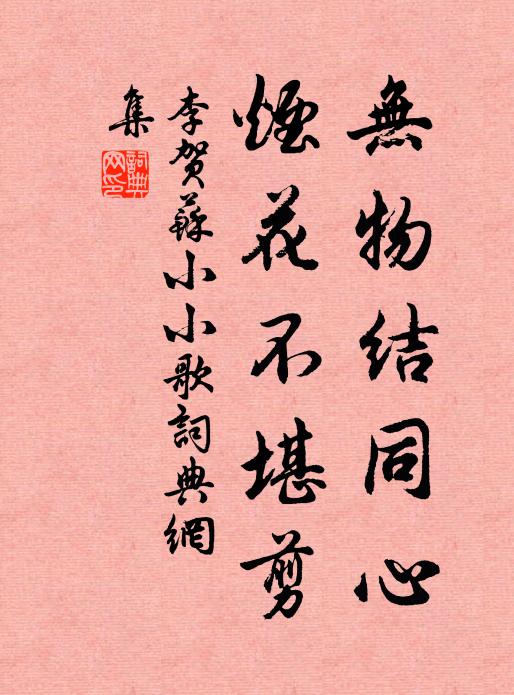 無物結同心
煙花不堪剪
李賀蘇小小歌詞典網
集
詞典
网印